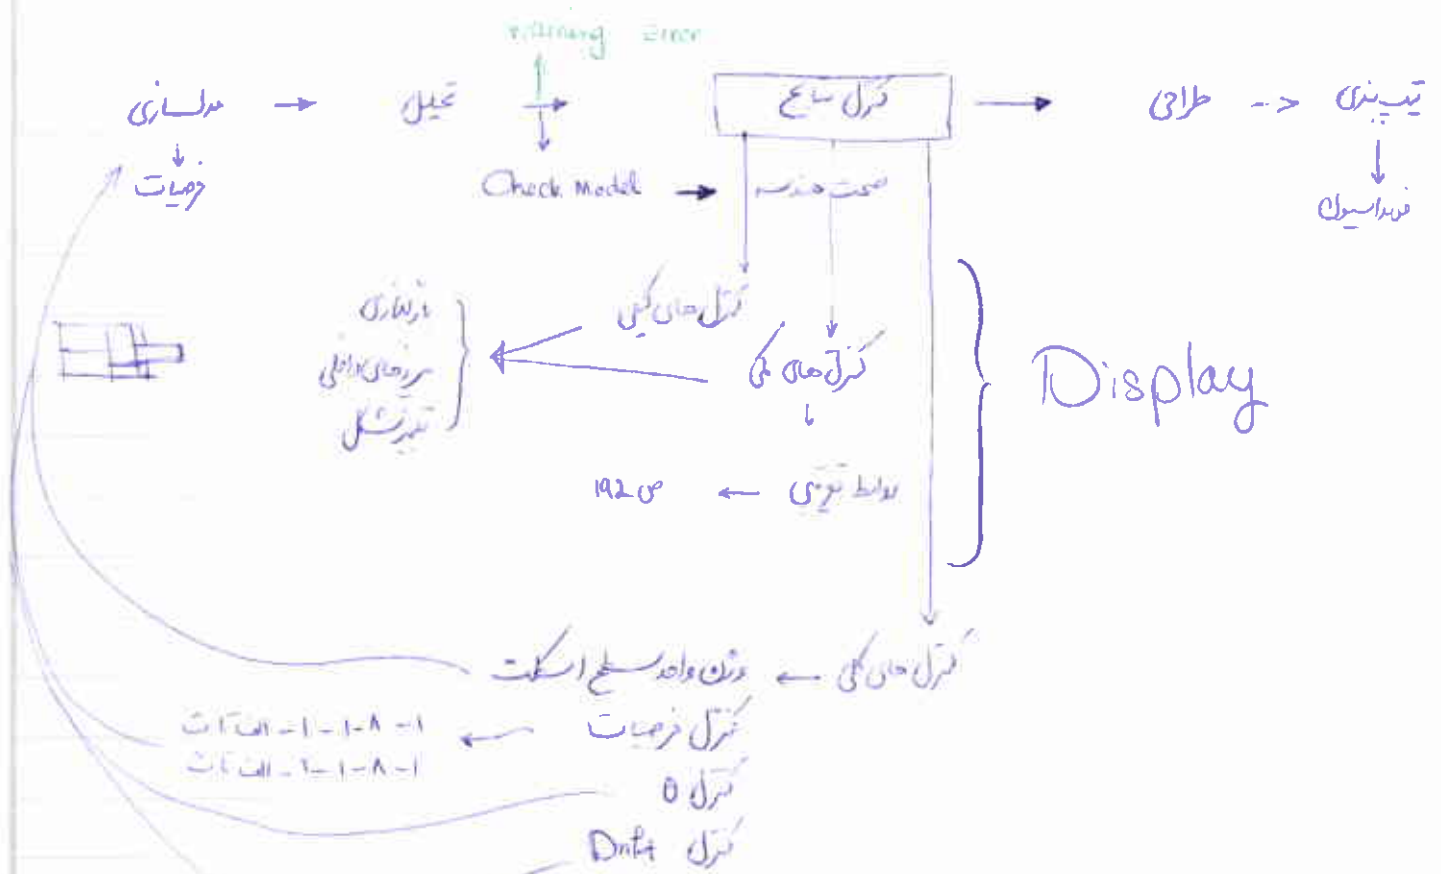 Warning Error
مدلسازی → تحلیل → کنترل نتایج → طراحی --> تیپ بندی
فرضیات
Check Model → صحت هندسه
فونداسیون
بارگذاری
کنترل های کیفی
مرزهای داخلی
کنترل های کمی
Display
تغییر شکل
روابط تقریبی ← ص 192
کنترل های کلی ← وزن واحد سطح اسکلت
کنترل فرضیات ← ۱-۸-۱-۱- الف تا ت
۱-۸-۱-۲- الف تا ث
کنترل θ
کنترل Drift